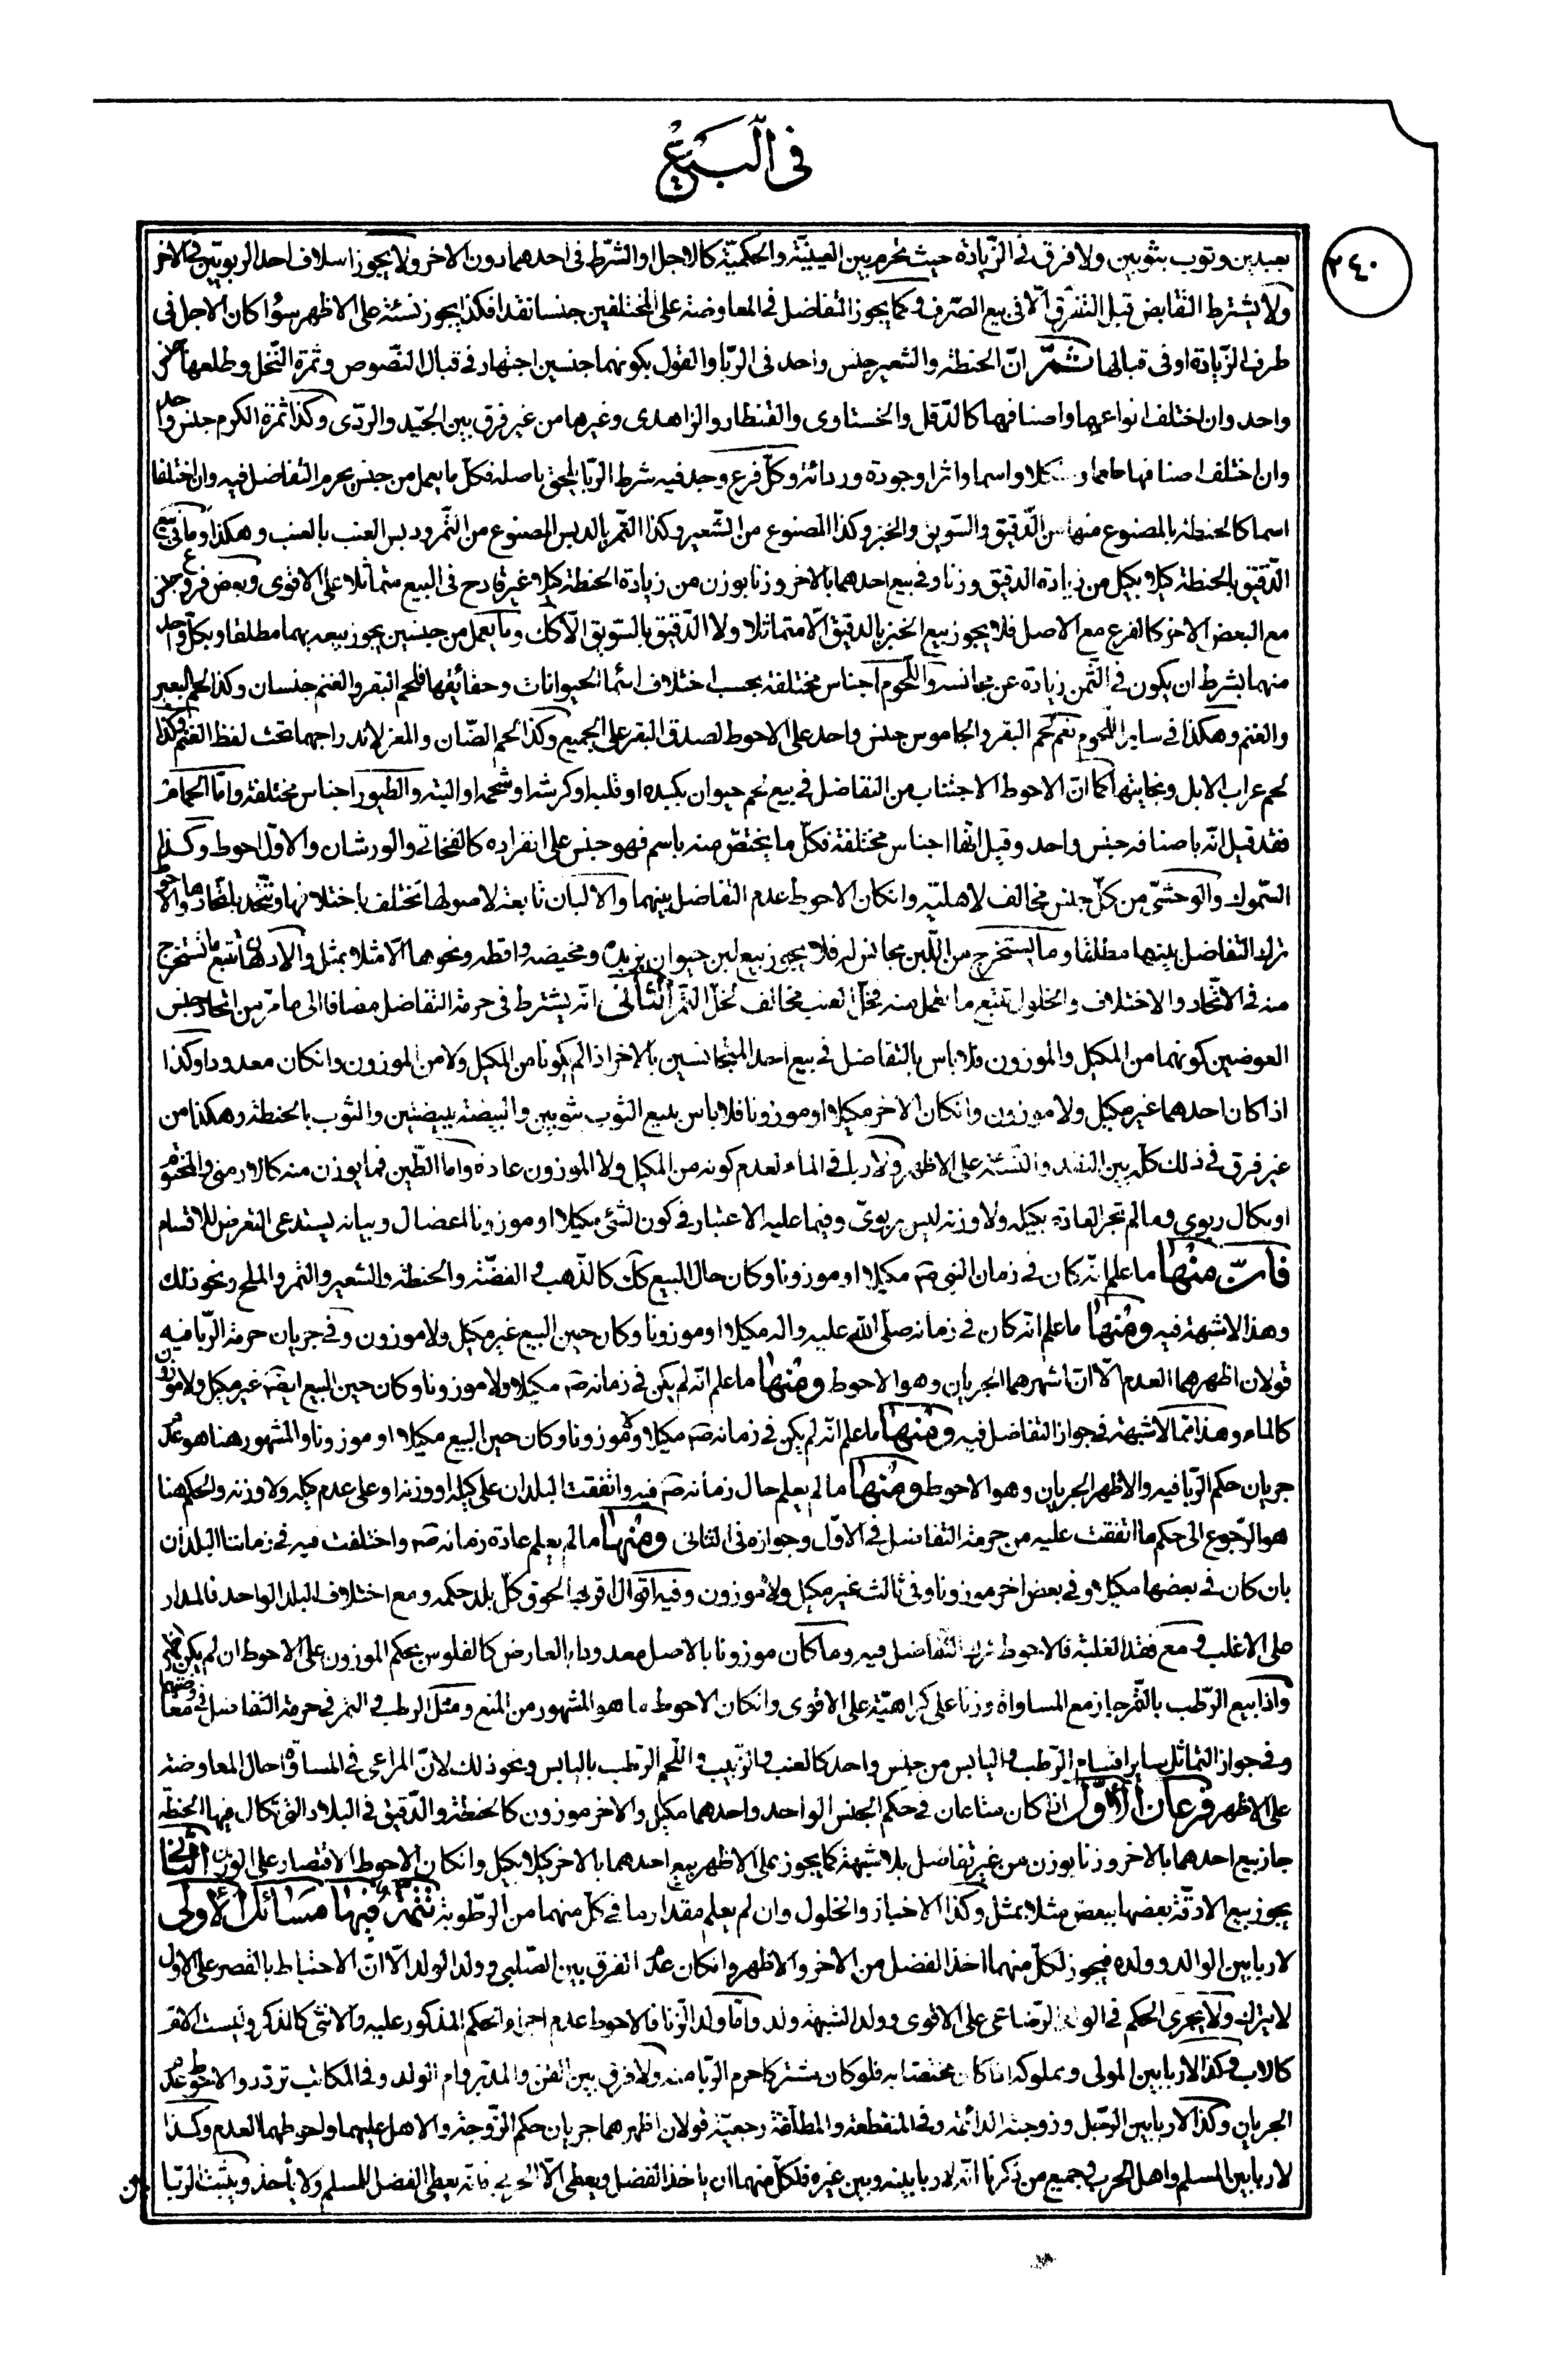 في البيع
٢٤٠
بعبدين وثوب بثوبين ولا فرق في الزّيادة حيث تحرم بين العينيّة والحكميّة كالاجل او الشّرط في احدهما دون الاخر ولا يجوز اسلاف احد الربويّين في الاخر
ولا يشترط التقابض قبل التفرّق الّا في بيع الصّرف وكما يجوز التفاضل في المعاوضة على المختلفين جنسا نقدا فكذا يجوز نسئة على الاظهر سواء كان الاجل في
طرف الزّيادة او في قبالها ثمّ انّ الحنطة والشعير جنس واحد في الرّبا والقول بكونهما جنسين اجتهاد في قبال النّصوص وثمرة النّخل وطلعها جنس
واحد وان اختلف انواعهما واصنافهما كالدّقل والخستاوى والقنطار والزاهدى وغيرها من غير فرق بين الجيّد والردّى وكذا ثمرة الكرم جنس واحد
وان اختلف اصنافها طعما وشكلا واسما واثرا وجودة وردائة وكلّ فرع وجد فيه شرط الرّبا يلحق باصله فكلّ ما يعمل من جنس يحرم التفاضل فيه وان اختلفا
اسما كالحنطة بالمصنوع منها من الدّقيق والسّويق والخبز وكذا المصنوع من الشّعير وكذا التّمر بالدبس المصنوع من التّمر ودبس العنب بالعنب وهكذا وما في بيع
الدّقيق بالحنطة كيلا بكيل من زيادة الدقيق وزنا وفي بيع احدهما بالاخر وزنا بوزن من زيادة الحنطة كيلا غير قادح في البيع متماثلا على الاقوى وبعض فروع جنس
مع البعض الاخر كالفرع مع الاصل فلا يجوز بيع الخبز بالدقيق الّا متماثلا ولا الدّقيق بالسّويق الّا كك وما يعمل من جنسين يجوز بيعه بهما مطلقا وبكلّ واحد
منهما بشرط ان يكون في الثّمن زيادة عن مجانسه واللّحوم اجناس مختلفة بحسب اختلاف اسماء الحيوانات وحقائقها فلحم البقر والغنم جنسان وكذا لحم البعير
والغنم وهكذا في ساير اللّحوم نعم لحم البقر والجاموس جنس واحد على الاحوط لصدق البقر على الجميع وكذا لحم الضّان والمعز لاندراجهما تحت لفظ الغنم وكذا
لحم عراب الابل وبخاتيها كما انّ الاحوط الاجتناب من التفاضل في بيع لحم حيوان بكبده او قلبه او كرشه او شحمه او اليته والطيور اجناس مختلفة وامّا الحمام
فقد قيل انّه باصنافه جنس واحد وقيل انّها اجناس مختلفة فكلّ ما يختصّ منه باسم فهو جنس على انفراده كالفخاتي والورشان والاوّل احوط وكذلك
السّموك والوحشيّ من كلّ جنس مخالف لاهليّه وانكان الاحوط عدم التفاضل بينهما والالبان تابعة لاصولها تختلف باختلافها وتتّحد باتّحادها والاحوط
ترك التفاضل بينهما مطلقا وما يستخرج من اللّبن مجانس له فلا يجوز بيع لبن حيوان بزبده ومخيضه واقطه ونحوها الّا مثلا بمثل والادهان تتبع ما تستخرج
منه في الاتّحاد والاختلاف والخلول تتبع ما تعمل منه فخلّ العنب مخالف لخلّ التّمر الثّاني انّه يشترط في حرمة التفاضل مضافا الى ما مرّ من اتّحاد جنس
العوضين كونهما من المكيل والموزون فلا باس بالتفاضل في بيع احد المتجانسين بالاخر اذا لم يكونا من المكيل ولا من الموزون وانكان معدودا وكذا
اذا كان احدهما غير مكيل ولا موزون وانكان الاخر مكيلا او موزونا فلا باس ببيع الثوب بثوبين والبيضة ببيضتين والثوب بالحنطة وهكذا من
غير فرق في ذلك كلّه بين النقد والنّسئة على الاظهر ولا ربا في الماء لعدم كونه من المكيل ولا الموزون عادة وامّا الطّين فما يوزن منه كالارمني والمختوم
او يكال ربوي وما لم تجر العادة بكيله ولا وزنه ليس بربويّ وفيما عليه الاعتبار في كون الشّئ مكيلا او موزونا اعضال وبيانه يستدعى التعرض للاقسام
فانّ منها ما علم انّه كان في زمان النبي صم مكيلا او موزونا وكان حال البيع كك كالذّهب والفضّة والحنطة والشعير والتمر والملح ونحو ذلك
وهذا لا شبهة فيه ومنها ما علم انّه كان في زمانه صلّى الله عليه واله مكيلا او موزونا وكان حين البيع غير مكيل ولا موزون وفي جريان حرمة الرّبا فيه
قولان اظهرهما العدم الّا انّ اشهرهما الجريان وهو الاحوط ومنها ما علم انّه لم يكن في زمانه صم مكيلا ولا موزونا وكان حين البيع ايضا غير مكيل ولا موزون
كالماء وهذا ممّا لا شبهة في جواز التفاضل فيه ومنها ما علم انّه لم يكن في زمانه صم مكيلا ولا موزونا وكان حين البيع مكيلا او موزونا والمشهور هنا هو عدم
جريان حكم الرّبا فيه والاظهر الجريان وهو الاحوط ومنها ما لم يعلم حال زمانه صم فيه واتّفقت البلدان على كيله او وزنه او على عدم كيله ولا وزنه والحكم هنا
هو الرّجوع الى حكم ما اتفقت عليه من حرمة التفاضل في الاوّل وجوازه في الثانى ومنها ما لم يعلم عادة زمانه صم واختلفت فيه في زماننا البلدان
بان كان في بعضها مكيلا وفي بعض اخر موزونا وفي ثالث غير مكيل ولا موزون وفيه اقوال اقربها لحوق كلّ بلد حكمه ومع اختلاف البلد الواحد فالمدار
على الاغلب ومع فقد الغلبة فالاحوط ترك التفاضل فيه وما كان موزونا بالاصل معدودا بالعارض كالفلوس بحكم الموزون على الاحوط ان لم يكن اظهر
واذا بيع الرّطب بالتّمر جاز مع المساواة وزنا على كراهيّة على الاقوى وانكان الاحوط ما هو المشهور من المنع ومثل الرطب والتمر في حرمة التفاضل في معاوضتهما
وفي جواز التماثل ساير اقسام الرّطب واليابس من جنس واحد كالعنب والزّبيب واللّحم الرّطب باليابس ونحو ذلك لانّ المراعى في المساواة حال المعاوضة
على الاظهر فرعان الاوّل اذا كان متاعان في حكم الجنس الواحد واحدهما مكيل والاخر موزون كالحنطة والدّقيق في البلاد التى تكال فيها الحنطة
جاز بيع احدهما بالاخر وزنا بوزن من غير تفاضل بلا شبهة كما يجوز على الاظهر بيع احدهما بالاخر كيلا بكيل وانكان الاحوط الاقتصار على الوزن الثّاني
يجوز بيع الادقّة بعضها ببعض مثلا بمثل وكذا الاخباز والخلول وان لم يعلم مقدار ما في كلّ منهما من الرطوبة تتمّة فيها مسائل الاولى
لا ربا بين الوالد وولده فيجوز لكلّ منهما اخذ الفضل من الاخر والاظهر وانكان عدم الفرق بين الصّلبي وولد الولد الّا انّ الاحتياط بالقصر على الاول
لا يترك ولا يجرى الحكم في الولد الرّضاعى على الاقوى وولد الشبهة ولد وامّا ولد الزّنا فالاحوط عدم اجراء الحكم المذكور عليه والانثى كالذكر وليست الام
كالاب وكذا لا ربا بين المولى ومملوكه اذا كان مختصّا به فلو كان مشتركا حرم الرّبا منه ولا فرق بين القن والمدبّر وام الولد وفي المكاتب تردّد والاحوط عدم
الجريان وكذا لا ربا بين الرّجل وزوجته الدائمة وفي المنقطعة والمطلّقة رجعيّة قولان اظهرهما جريان حكم الزّوجة والاهل عليهما واحوطهما العدم وكذا
لا ربا بين المسلم واهل الحرب وجميع من ذكرنا انّه لا ربا بينه وبين غيره فلكلّ منهما ان ياخذ الفضل ويعطى الّا الحربى فانّه يعطى الفضل للمسلم ولا يأخذ ويثبت الرّبا
بين